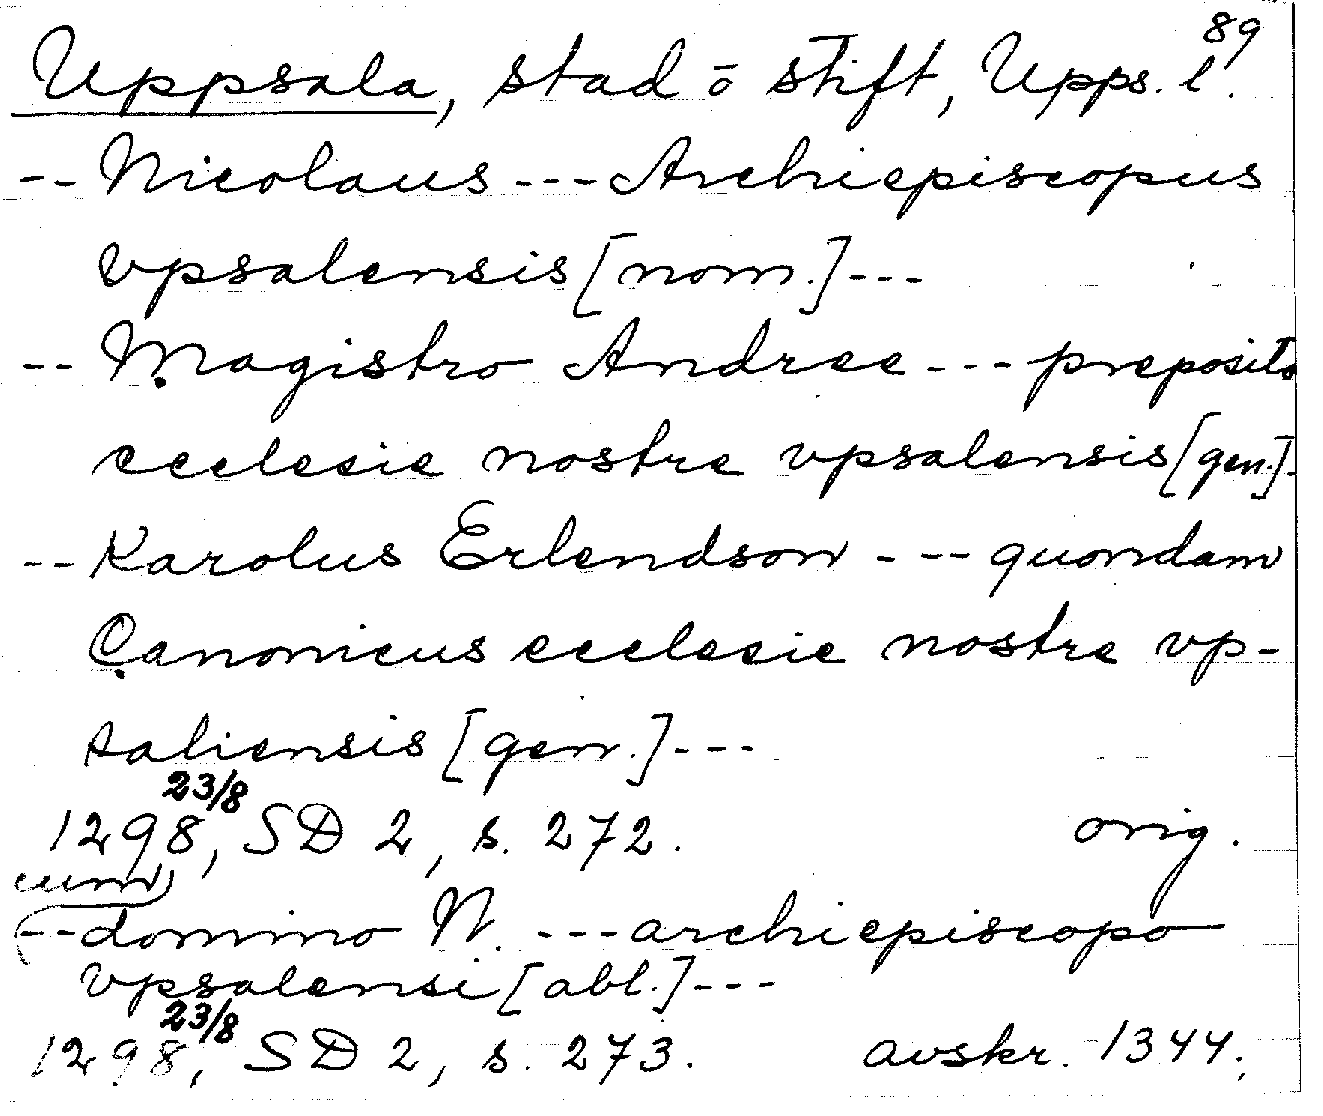 89
Uppsala, stad ō stift, Upps. l.
-- Nicolaus --- Archiepiscopus
vpsalensis [nom.] ---
-- Magistro Andree --- preposito
ecclesie nostre vpsalensis [gen.] -
-- Karolus Erlendson --- quondam
Canonicus ecclesie nostre vp-
saliensis [gen.] ---
23/8
1298, SD 2, s. 272. orig.
cum
-- domino N. --- archiepiscopo
vpsalensi [abl.] ---
23/8
1298, SD 2, s. 273. avskr. 1344.